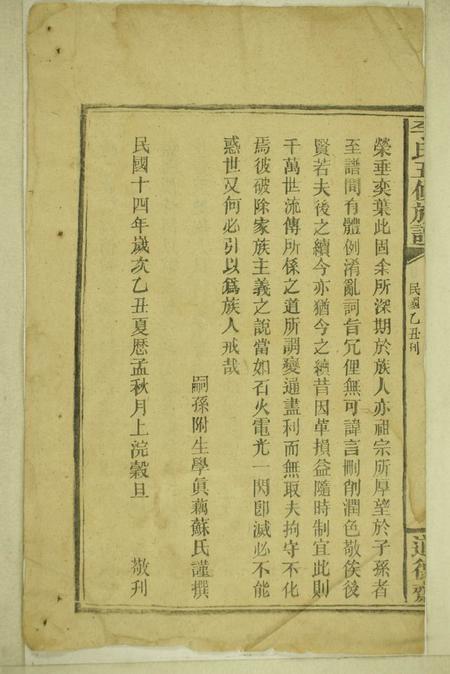 李氏五修族譜
民國乙丑刊
道後齋
榮垂奕葉此固余所深期於族人亦祖宗所厚望於子孫者
至譜間有體例淆亂詞旨冗俚無可諱言刪削潤色敬俟後
賢若夫後之續今亦猶今之續昔因革損益隨時制宜此則
千萬世流傳所係之道所謂變通盡利而無取夫拘守不化
焉彼破除家族主義之說當如石火電光一閃即滅必不能
惑世又何必引以爲族人戒哉
嗣孫附生學眞藕蘇氏謹撰
民國十四年歲次乙丑夏曆孟秋月上浣穀旦 敬刊